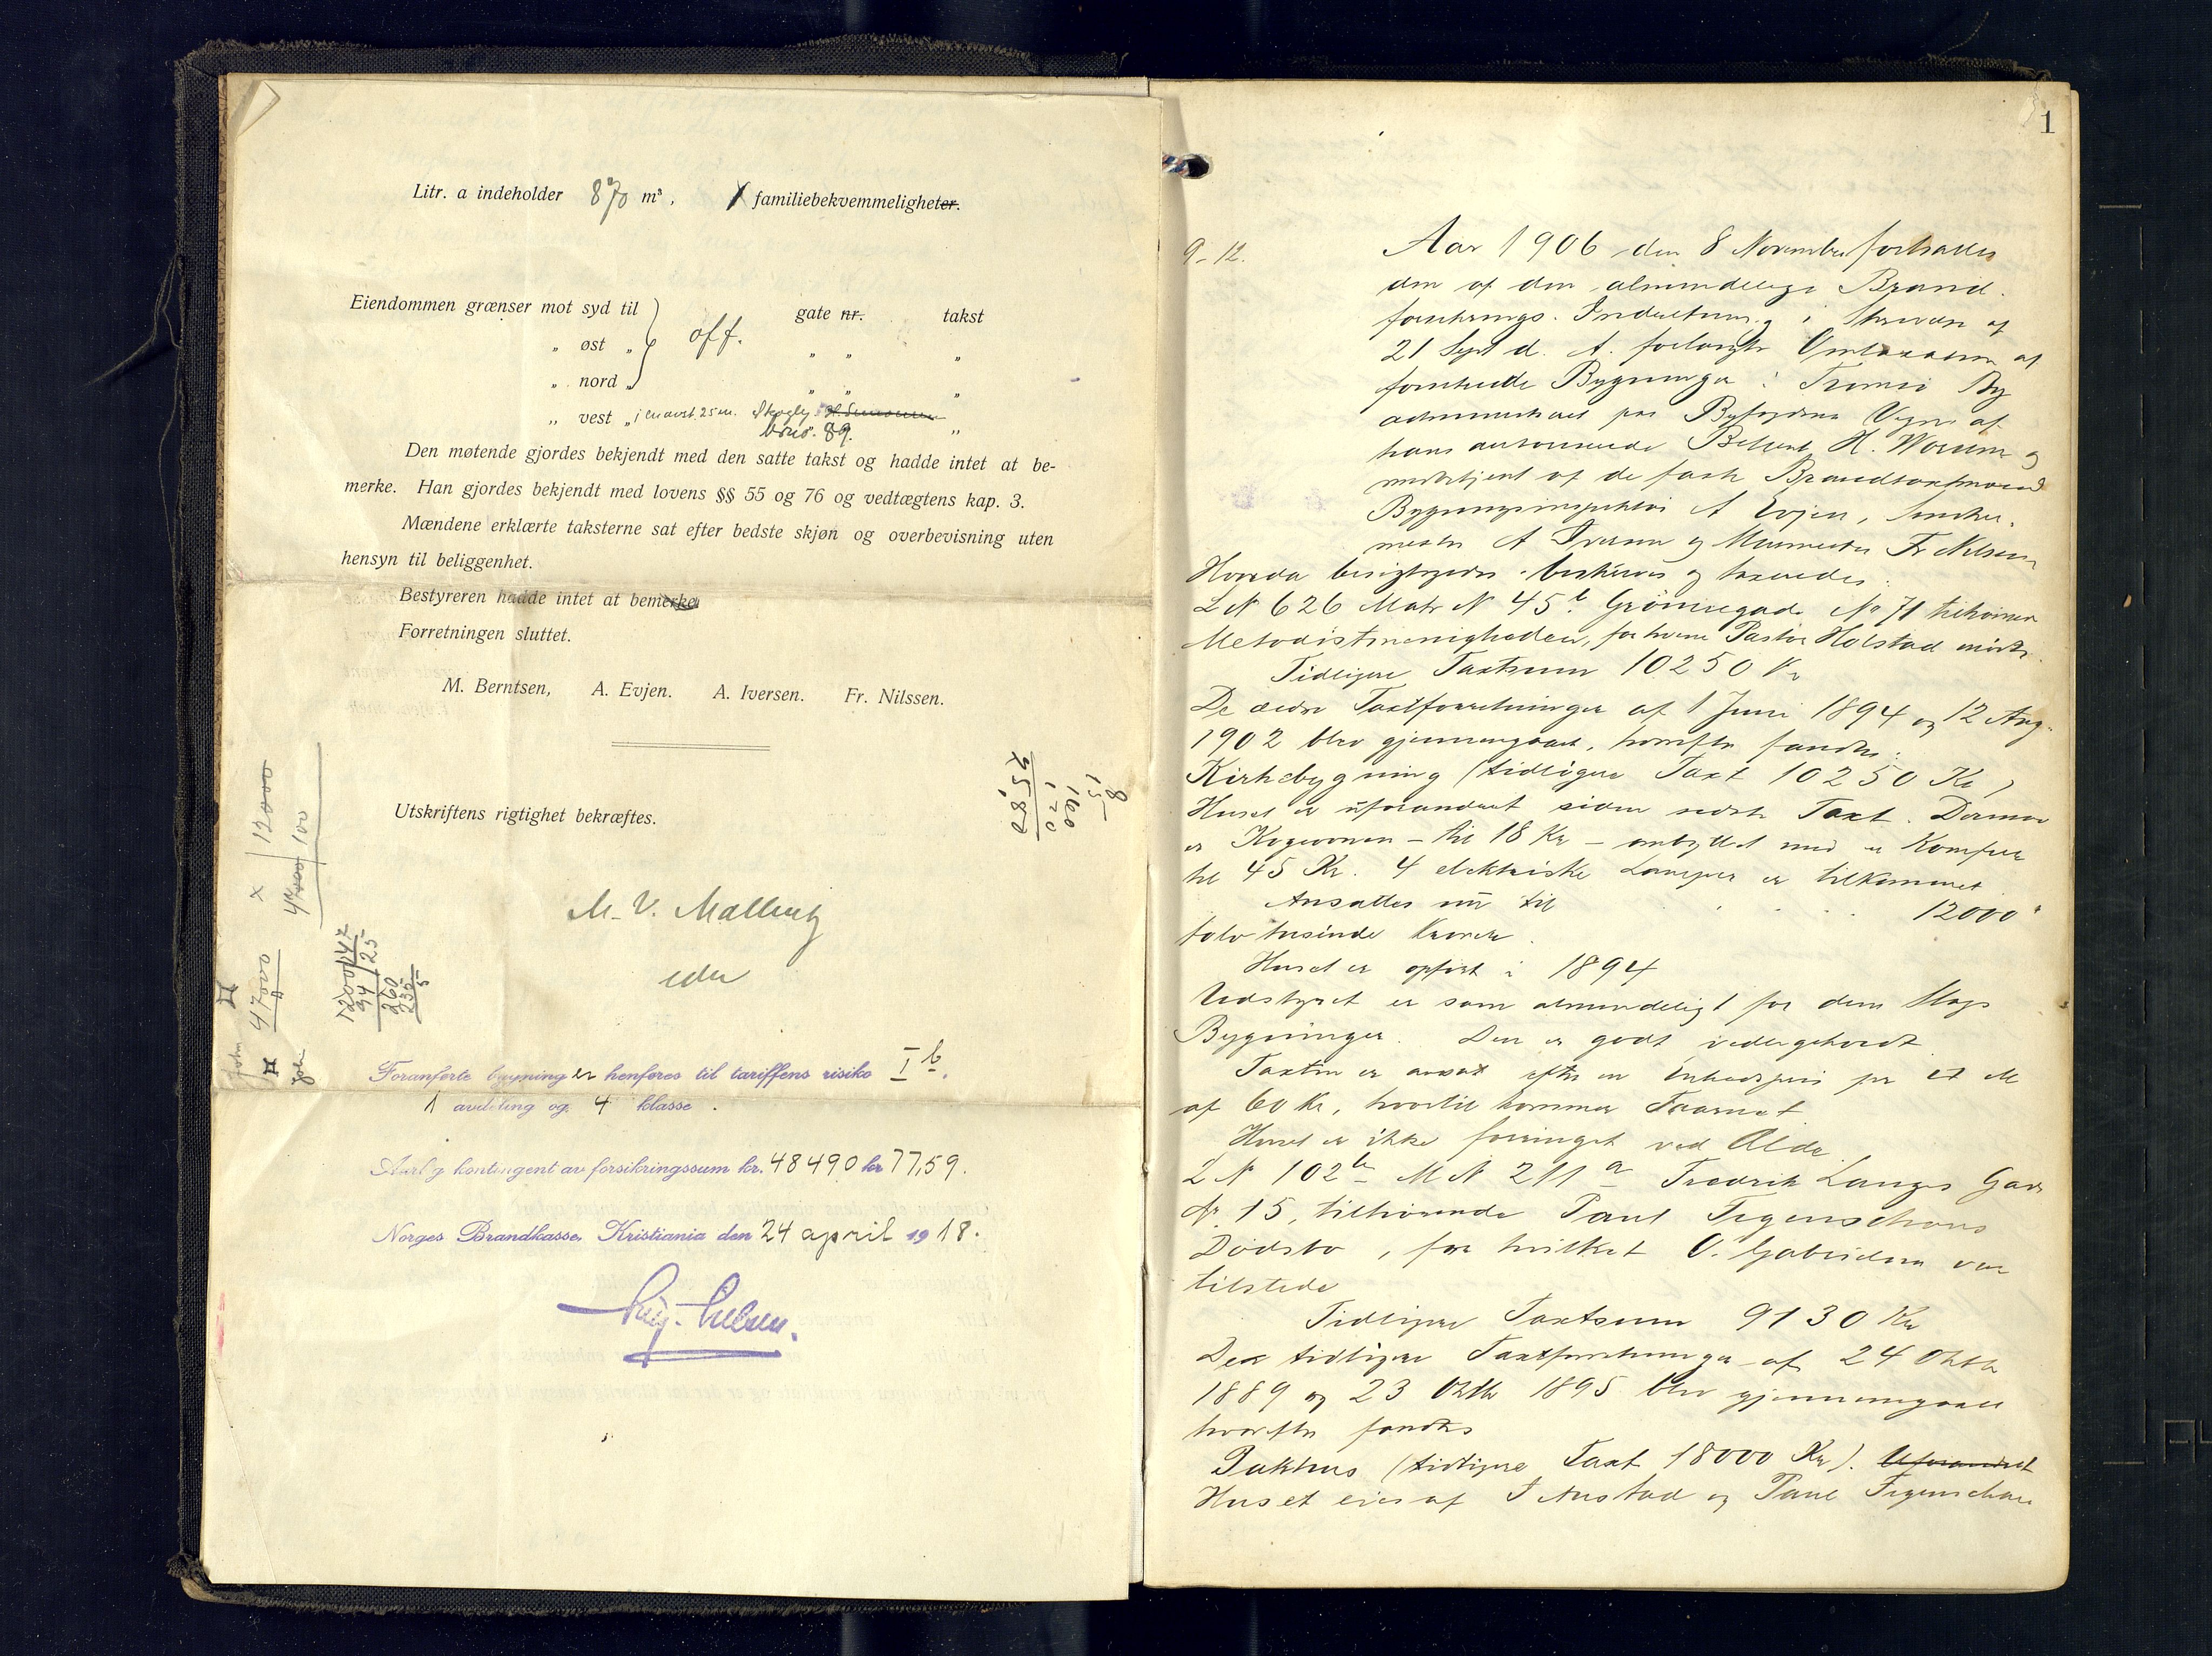 Litr. a indeholder 870 m³, 1 familiebekvemmeligheter.
Eiendommen grænser mot syd til off. gate nr. takst
„ øst „ „ „ „
„ nord „ „ „ „
„ vest „ i en avst. 25 m. Skogly „
bruks. 89.
Den møtende gjordes bekjendt med den satte takst og hadde intet at be-
merke. Han gjordes bekjendt med lovens §§ 55 og 76 og vedtægtens kap. 3.
Mændene erklærte taksterne sat efter bedste skjøn og overbevisning uten
hensyn til beliggenhet.
Bestyreren hadde intet at bemerke
Forretningen sluttet.
M. Berntsen, A. Evjen. A. Iversen. Fr. Nilssen.
Utskriftens rigtighet bekræftes.
M. V. Malling
eder
Foranførte bygning er henføres til tariffens risiko I b.
1 avdeling og 4 klasse.
Aarlig kontingent av forsikringssum kr. 48490 kr 77,59.
Norges Brandkasse, Kristiania den 24 april 1918.
x 12000
47000 100
47000
8
15
160
120
25,80
1
9-12.
Aar 1906 den 8 November fortsattes
den af den almindelige Brand-
forsikrings-Indretning i Skrivelse af
21 Sept d. A. forlangte Omtaxation af
forskjellige Bygninger i Tromsø By
administreret paa Byfogdens Vegne af
hans autoriserede Betjent H. Worum og
medbetjent af de faste Brandtaxtmænd
Bygningsinspektør A Evjen, Snedker-
mester A Iversen og Murmester Fr Nilsen
Hvorda besigtigedes, beskreves og taxeredes:
L N 626 Matr N 45b. Grönnegade No 71 tilhörende
Metodistmenigheden, for hvem Pastor Holstad mödte.
Tidligere Taxtsum 10250 Kr
De ældre Taxtforretninger af 1 Juni 1894 og 12 Aug.
1902 blev gjennemgaaet, hvorefter fandtes:
Kirkebygning (tidligere Taxt 10250 Kr)
Huset er uforandret siden sidste Taxt. Dermed
er Kogeovnen – til 18 Kr – ombyttet med et Komfur
til 45 Kr. 4 elektriske Lamper er tilkommet.
Ansattes nu til . . . . 12000 "
tolv tusinde Kroner.
Huset er opført i 1894
Udstyret er som almindeligt for dem Slags
Bygninger. Den er godt vedligeholdt
Taxten er ansat efter en Enhedspris pr □ M
af 60 Kr, hvortil kommer Taarnet
Huset er ikke forringet ved Ælde
L N 102b M N 211a Fredrik Langes Gade
Nr. 15, tilhørende Paul Figenschous
Dødsbo, for hvilket O. Gabrielsen var
tilstede
Tidligere Taxtsum 9130 Kr
De tidligere Taxtforretninger af 24 Oktbr
1889 og 23 Oktbr 1895 blev gjennemgaaet
hvorefter fandtes
Pakhus (tidligere Taxt 18000 Kr). Uforandret
Huset eies af J Austad og Paul Figenschou